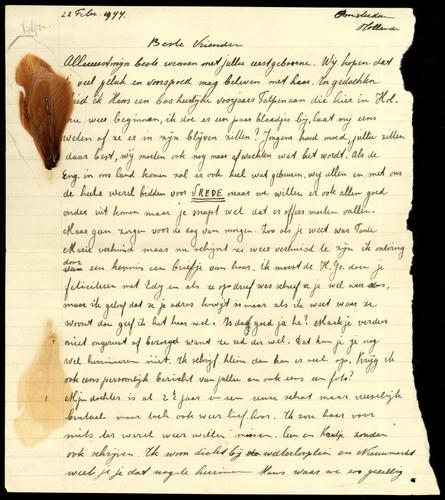 22 Febr. 1944.
Amsterdam
Holland
Beste Vrienden
Allereerst mijn beste wensen met jullie eerstgeborene. Wij hopen dat
je veel geluk en voorspoed mag beleven met haar. In gedachten
bied ik Hans een bos heerlijke voorjaars Tulpen aan die hier in Hol-
nu weer beginnen, ik doe er een paar blaadjes bij, laat mij eens
weten of ze er in zijn blijven zitten? Jongens houd moed jullie zitten
daar best, wij moeten ook nog maar afwachten wat het wordt. Als de
Eng. in ons land komen zal er ook heel wat gebeuren, wij allen en met ons
de heele wereld bidden voor VREDE maar we willen er ook allen goed
onder uit komen maar je snapt wel dat er offers moeten vallen.
Maar geen zorgen voor de dag van morgen. Zoo als je weet was Tante
Marie verhuisd maar nu schijnt ze weer verhuisd te zijn ik ontving
door
van een kennis een briefje van haar. Ik moest de H. Gr. doen je
feliciteren met Edy en als ze op dreef was schreef ze je wel weer
maar ik geloof dat ze je adres kwijt is maar als ik weet waar ze
woont dan geef ik het haar wel. Is dat goed ja he? Maak je verder
niet ongerust of bezorgd want ze red der wel. Dat kan je je nog
wel herinneren niet. Ik schrijf klein dan kan er veel op. Krijg ik
ook eens persoonlijk bericht van jullie en ook eens een foto?
Mijn dochter is al 2½ jaar en een reuze schat maar vreselijk
brutaal maar toch ook weer lief hoor. Ik zou haar voor
niets ter wereld weer willen missen. Een en Kaatje zouden
ook schrijven. Ik woon dicht bij waterlooplein en Nieuwmarkt
weet je je dat nog te herinneren Hans waar we zoo gezellig